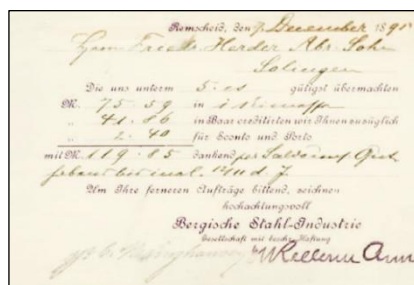 Remscheid, den 7. December 1891
Herrn Friedr. Herder Abr. Sohn
Solingen
Die uns unterm 5. cs gütigst übermachten
M. 75.59 in
„ 41.86 in Baar creditirten wir Ihnen zuzüglich
„ 2.40 für Sconto und Porto
mit M. 119.85 dankend per Saldo
d. J.
Um Ihre ferneren Aufträge bittend, zeichnen
hochachtungsvoll
Bergische Stahl-Industrie
Gesellschaft mit beschr. Haftung